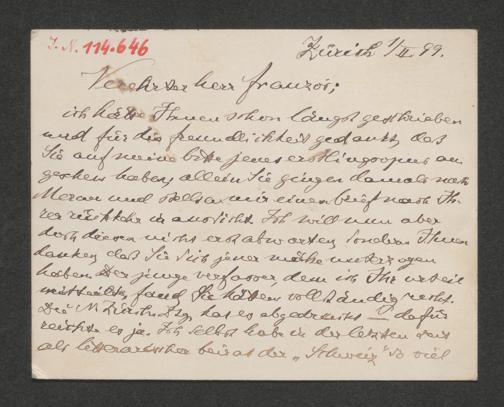 I.N. 114.646
Zürich 1/II 99.
Verehrter Herr Franzos;
ich hätte Ihnen schon längst geschrieben
und für die freundlichkeit gedankt, daß
Sie auf meine bitte jenes erstlingsopus an
gesehen haben, allein Sie gingen damals nach
Meran und stellten mir einen brief nach Ih-
rer rückkehr in aussicht. Ich will nun aber
doch diesen nicht erst abwarten, sondern Ihnen
danken, daß Sie sich jener mühe unterzogen
haben. Der junge verfasser, dem ich Ihr urteil
mitteilte, fand Sie hätten vollständig recht.
Die N. Zürch. Ztg. has es abgedruckt dafür
reichte es ja. Ich selbst habe in der letzten zeit
als litterarischer beirat der „Schweiz" so viel